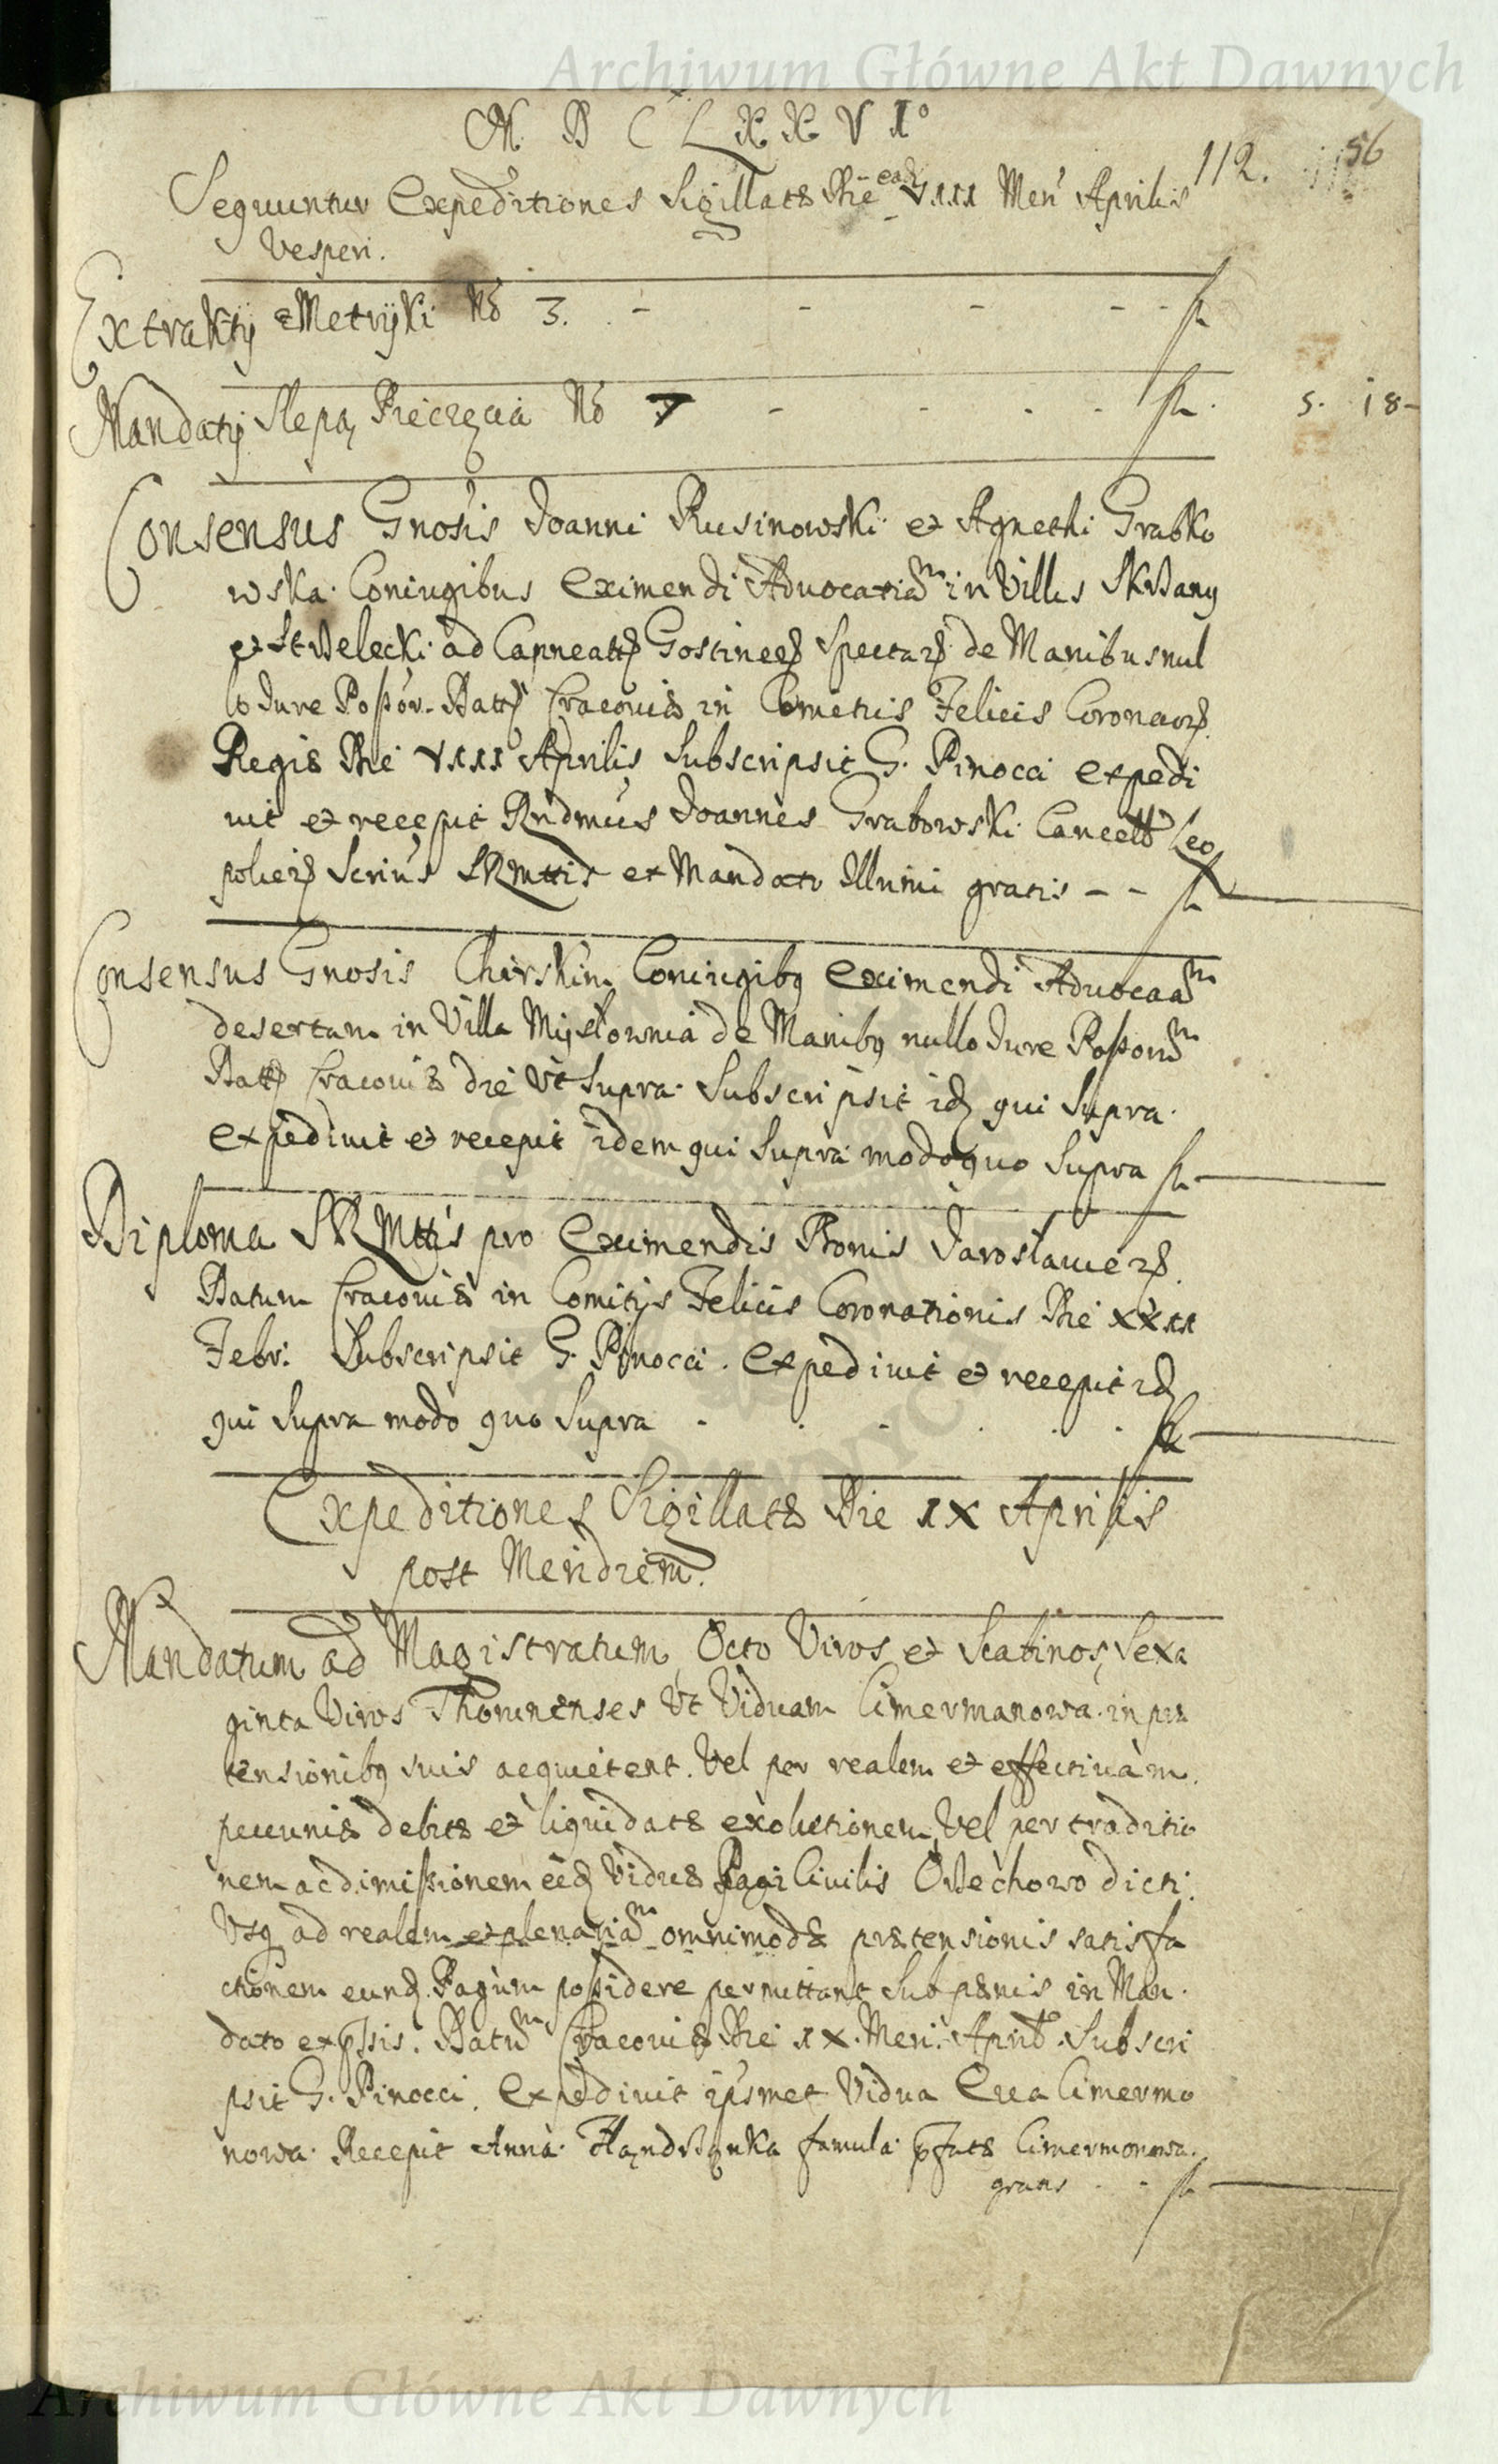 Archiwum Główne Akt Dawnych
M D C L X X V I°
112. 56
Sequuntur Expeditiones Sigillatæ Die ead VIII Men̄ Aprilis
Vesperi.
Extrakty z Metryki No 3. - - - - - fl
Mandaty Slepą Pieczęcią No 7 - - - - fl. 5. 18-
Consensus Gnosis Joanni Rusinowski et Agnethi Grabko
wska Coniugibus Eximendi Advocatiam in Villis
et ad Capneatt Gostinen Spectan de Manibus nul
lo Jure Posson. Datt Cracoviæ in Comitiis Felicis Coronaon.
Regiæ Die VIII Aprilis Subscripsit G. Pinocci expedi
vit et recepit Rndmus Joannes Grabowski Cancell Leo
polien Scrius SRMttis et Mandato Illmi gratis - - fl
Consensus Gnosis Chirskim Coniugibq Eximendi Advocaam
desertam in Villa Mysłownia de Manibq nullo Jure Posson
Datt Cracoviæ die Vt Supra. Subscripsit id qui Supra.
expedivit et recepit idem qui Supra modo quo Supra fl
Diploma SRMttis pro Eximendis Bonis Jaroslavien.
Datum Cracoviæ in Comitiis Felicis Coronationis Die
Febr. Subscripsit G. Pinocci. Expedivit et recepit id
qui Supra modo quo Supra - . - . . . fl
Expeditiones Sigillatæ Die IX Aprilis
post Meridiem.
Mandatum ad Magistratum Octo Viros et Scabinos, Sexa
ginta Viros Thorunenses Vt Viduam Cimermanowa in præ
tensionibq suis acquietent. Vel per realem et effectivam
pecuniæ debitæ et liquidatæ exolutionem, Vel per traditio
nem ac dimissionem eid Viduæ Pagi Civilis Orzechowo dicti.
Vsq ad realem et plenariam omnimodæ prætensionis satisfa
ctionem eund Pagum possidere permittant Sub pænis in Man
dato expssis. Datum Cracoviæ Die IX. Men. April. Subscri
psit G. Pinocci. Expedivit ipsmet Vidua Eva Cimermo
nowa. Recepit Anna famula pfatæ Cimermonowa.
gratis . - fl
Archiwum Główne Akt Dawnych